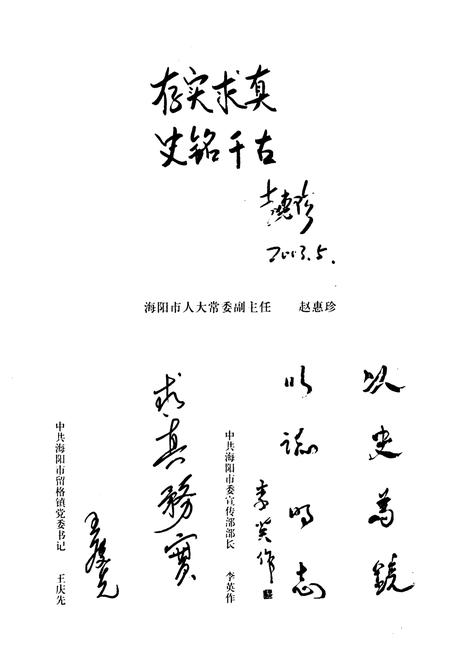 存实求真
史铭千古
赵惠珍
2003.5.
海阳市人大常委副主任 赵惠珍
以史为镜
以志明志
李英作
中共海阳市委宣传部部长 李英作
求真務實
王庆先
中共海阳市留格镇党委书记 王庆先